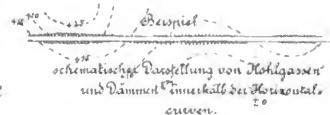 420
428
Beispiel
schematischer Darstellung von Hohlgassen
und Dämmen innerhalb der Horizontal-
curven.